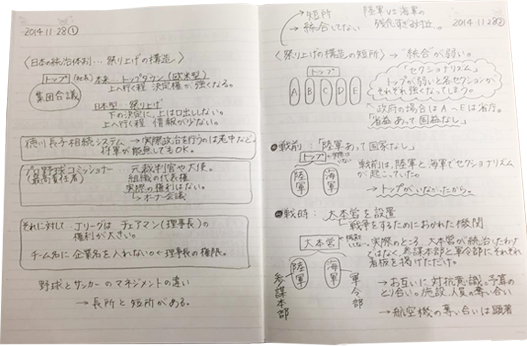 2014.11.28①
〈日本の統治体制…祭り上げの構造〉
トップ(社長) 本来…トップダウン(欧米型)
集団合議
上へ行く程、決定権が強くなる。
日本型…祭り上げ
下の決定に、上は口出ししない。
上へ行く程、情報が少ない。
徳川長子相続システム→実際政治を行うのは老中など。
将軍が能無しでもOK。
プロ野球コミッショナー
(最高責任者)
元裁判官や大使。
組織の代表権
実際の権利はない。
→オーナー会議
それに対して Jリーグは チェアマン(理事長)の
権利が大きい。
チーム名に企業名を入れない←理事長の権限。
野球とサッカーのマネジメントの違い
→長所と短所がある。
→短所
→統合してない
陸軍 vs 海軍の
2014.11.28②
〈祭り上げの構造の短所〉→「統合」が弱い。
トップ
A B C D E
「セクショナリズム」
トップが弱いと各セクションが
それぞれ強くなってしまう。
政府の場合は A〜Eは省庁。
「省益あって国益なし」
●戦前:「陸軍あって国家なし」
トップ
陸軍 海軍
戦前は、陸軍と海軍でセクショナリズム
が起こっていた
→トップがいなかったから。
●戦時:大本営を設置
戦争をするためにおかれた機関
大本営
陸軍 海軍
参謀本部
軍令部
実際のところ、大本営が統治したわけ
ではなく、参謀本部と軍令部にそれぞれ
看板を掲げただけ。
→お互いに対抗意識。予算の
とり合い。施設、人員の奪い合い
→航空機の奪い合いは顕著